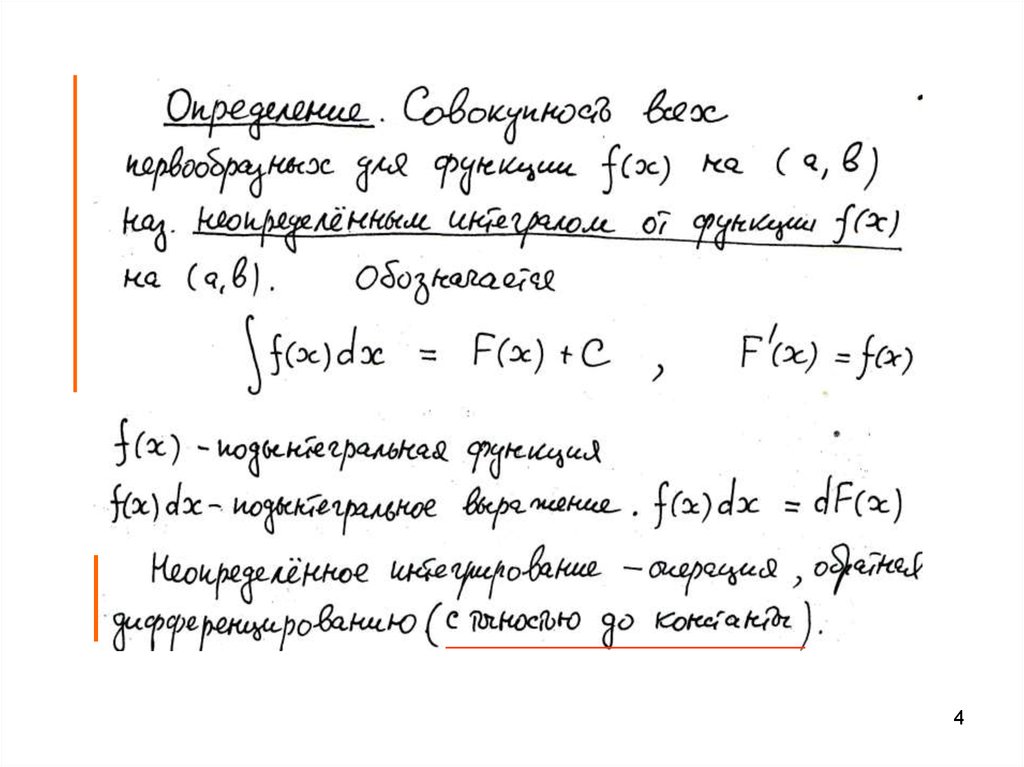 Определение. Совокупность всех
первообразных для функции f(x) на (a, b)
наз. неопределённым интегралом от функции f(x)
на (a, b). Обозначается
∫f(x)dx = F(x) + C , F'(x) = f(x)
f(x) - подынтегральная функция
f(x)dx - подынтегральное выражение. f(x)dx = dF(x)
Неопределённое интегрирование - операция, обратная
дифференцированию (с тчностью до константы).
4